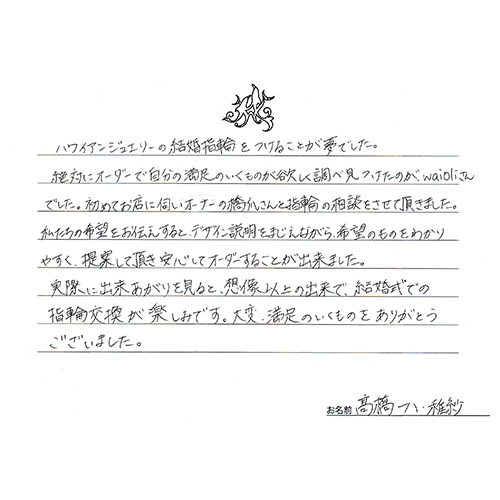 ハワイアンジュエリーの結婚指輪をつけることが夢でした。
絶対にオーダーで自分の満足のいくものが欲しく調べ見つけたのがwaioliさん
でした。初めてお店に伺いオーナーの橋爪さんと指輪の相談をさせて頂きました。
私たちの希望をお伝えすると、デザイン説明をまじえながら、希望のものをわかり
やすく、提案して頂き安心してオーダーすることが出来ました。
実際に出来あがりを見ると、想像以上の出来で、結婚式での
指輪交換が楽しみです。大変、満足のいくものをありがとう
ございました。
お名前 髙橋 稚紗